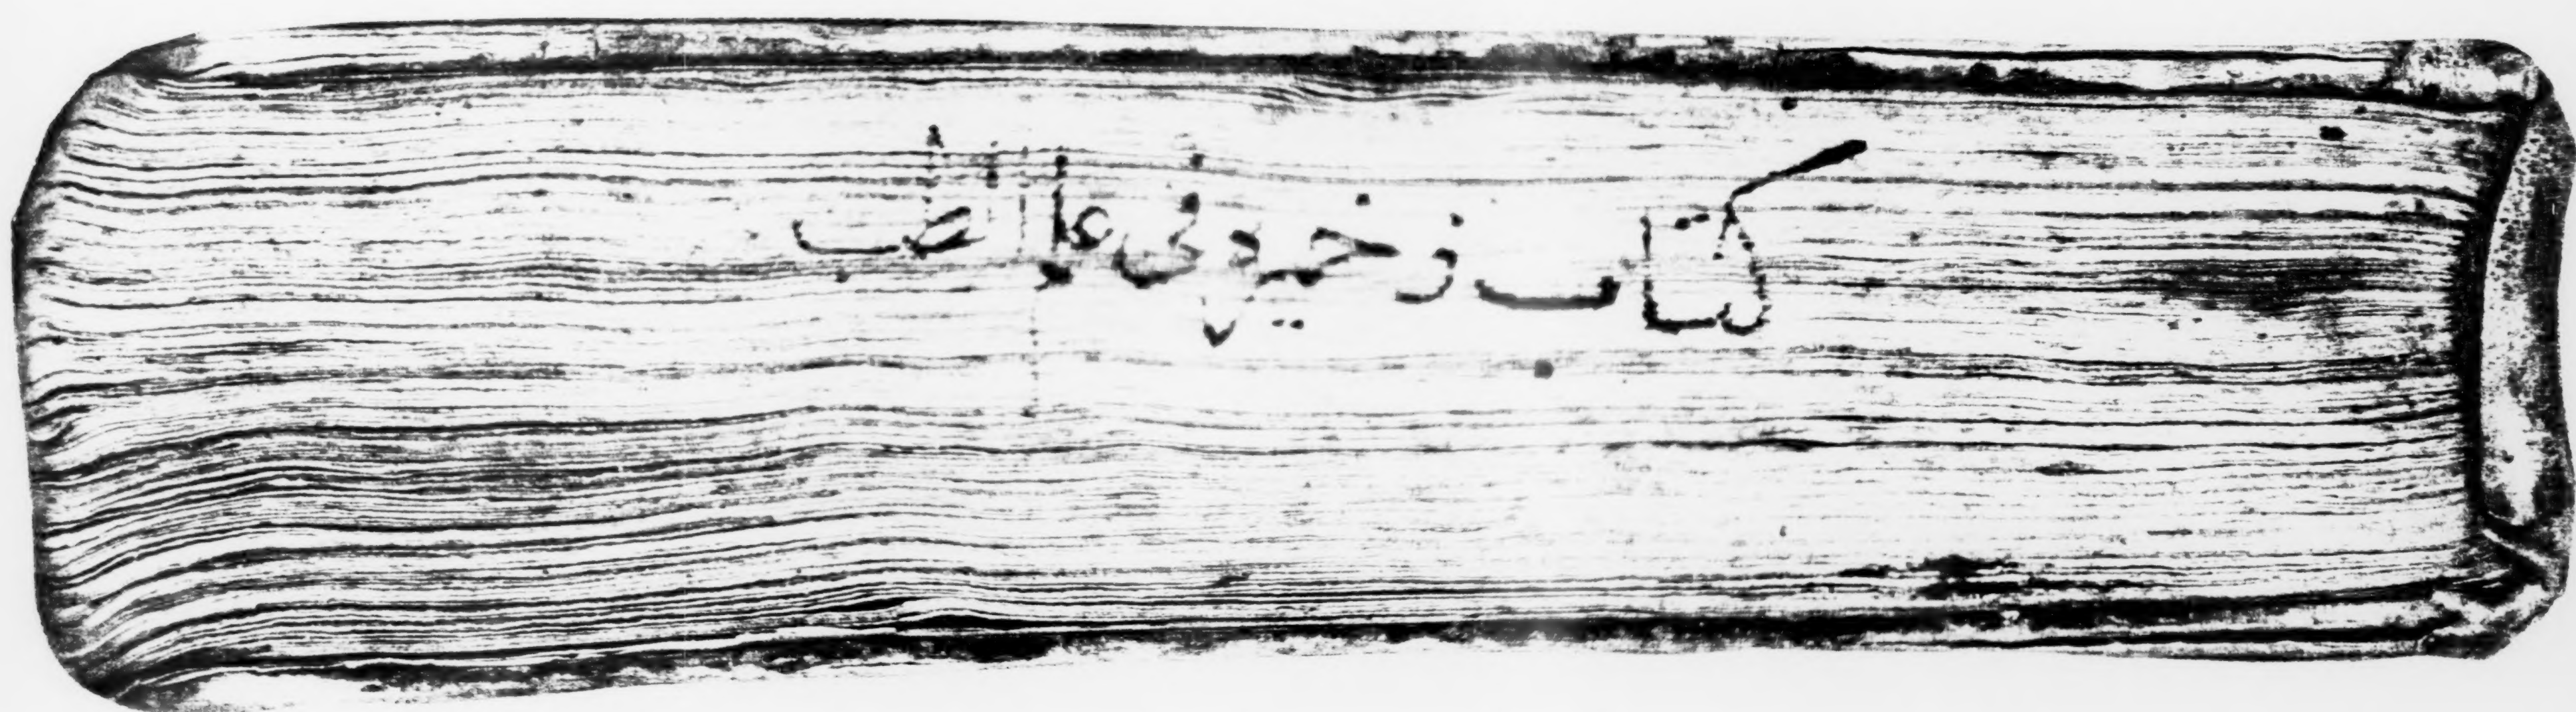 كتاب ذخيره في علم الطب